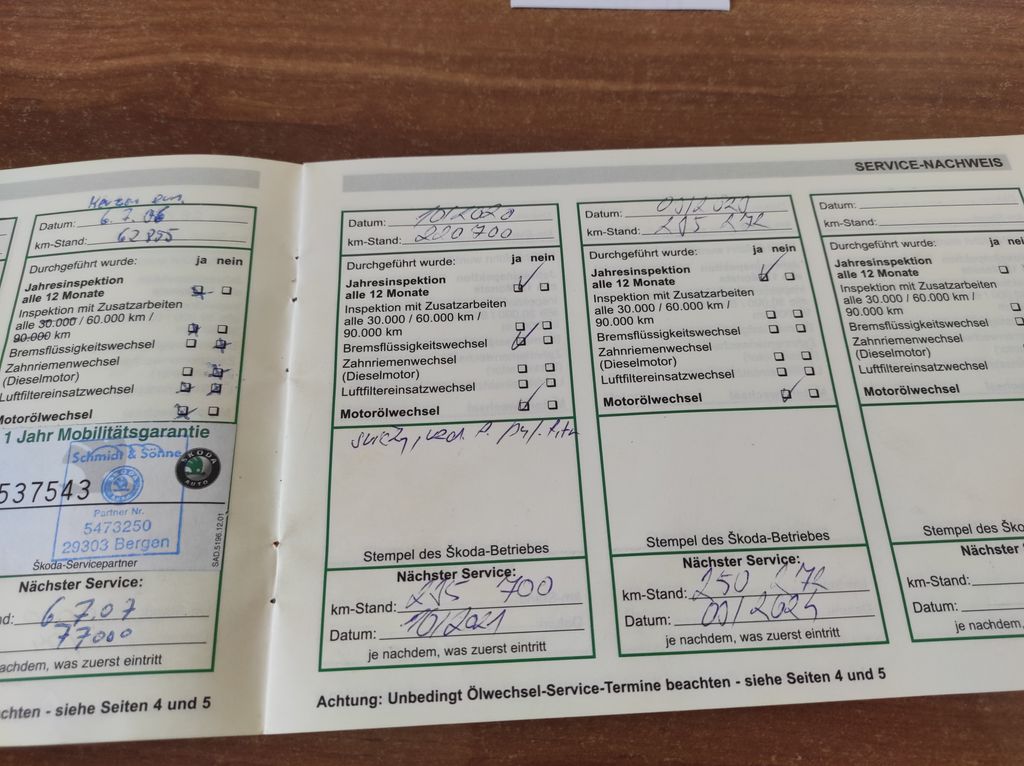 6.7.06
Datum:
km-Stand: 62855
Durchgeführt wurde: ja nein
Jahresinspektion
alle 12 Monate
Inspektion mit Zusatzarbeiten
alle 30.000 / 60.000 km /
90.000 km
Bremsflüssigkeitswechsel
Zahnriemenwechsel
(Dieselmotor)
Luftfiltereinsatzwechsel
Motorölwechsel
1 Jahr Mobilitätsgarantie
Schmidt & Söhne
SKODA
AUTO
537543
Partner Nr.
5473250
29303 Bergen
Škoda-Servicepartner
SAD.5196.12.01
Nächster Service:
nd: 6.7.07
77000
achdem, was zuerst eintritt
chten - siehe Seiten 4 und 5
SERVICE-NACHWEIS
Datum: 10/2020
km-Stand: 220 700
Durchgeführt wurde: ja nein
Jahresinspektion
alle 12 Monate
Inspektion mit Zusatzarbeiten
alle 30.000 / 60.000 km /
90.000 km
Bremsflüssigkeitswechsel
Zahnriemenwechsel
(Dieselmotor)
Luftfiltereinsatzwechsel
Motorölwechsel
Stempel des Škoda-Betriebes
Nächster Service:
km-Stand: 235 700
Datum: 10/2021
je nachdem, was zuerst eintritt
Datum:
km-Stand: 235 272
Durchgeführt wurde: ja nein
Jahresinspektion
alle 12 Monate
Inspektion mit Zusatzarbeiten
alle 30.000 / 60.000 km /
90.000 km
Bremsflüssigkeitswechsel
Zahnriemenwechsel
(Dieselmotor)
Luftfiltereinsatzwechsel
Motorölwechsel
Stempel des Škoda-Betriebes
Nächster Service:
km-Stand: 250 272
Datum: 09/2024
je nachdem, was zuerst eintritt
Datum:
km-Stand:
Durchgeführt wurde: ja
Jahresinspektion
alle 12 Monate
Inspektion mit Zusatzarbeiten
alle 30.000 / 60.000 km /
90.000 km
Bremsflüssigkeitswechsel
Zahnriemenwechsel
(Dieselmotor)
Luftfiltereinsatzwechsel
Motorölwechsel
Stempel des Ško
Nächster
km-Stand:
Datum:
je nachdem,
Achtung: Unbedingt Ölwechsel-Service-Termine beachten - siehe Seiten 4 und 5